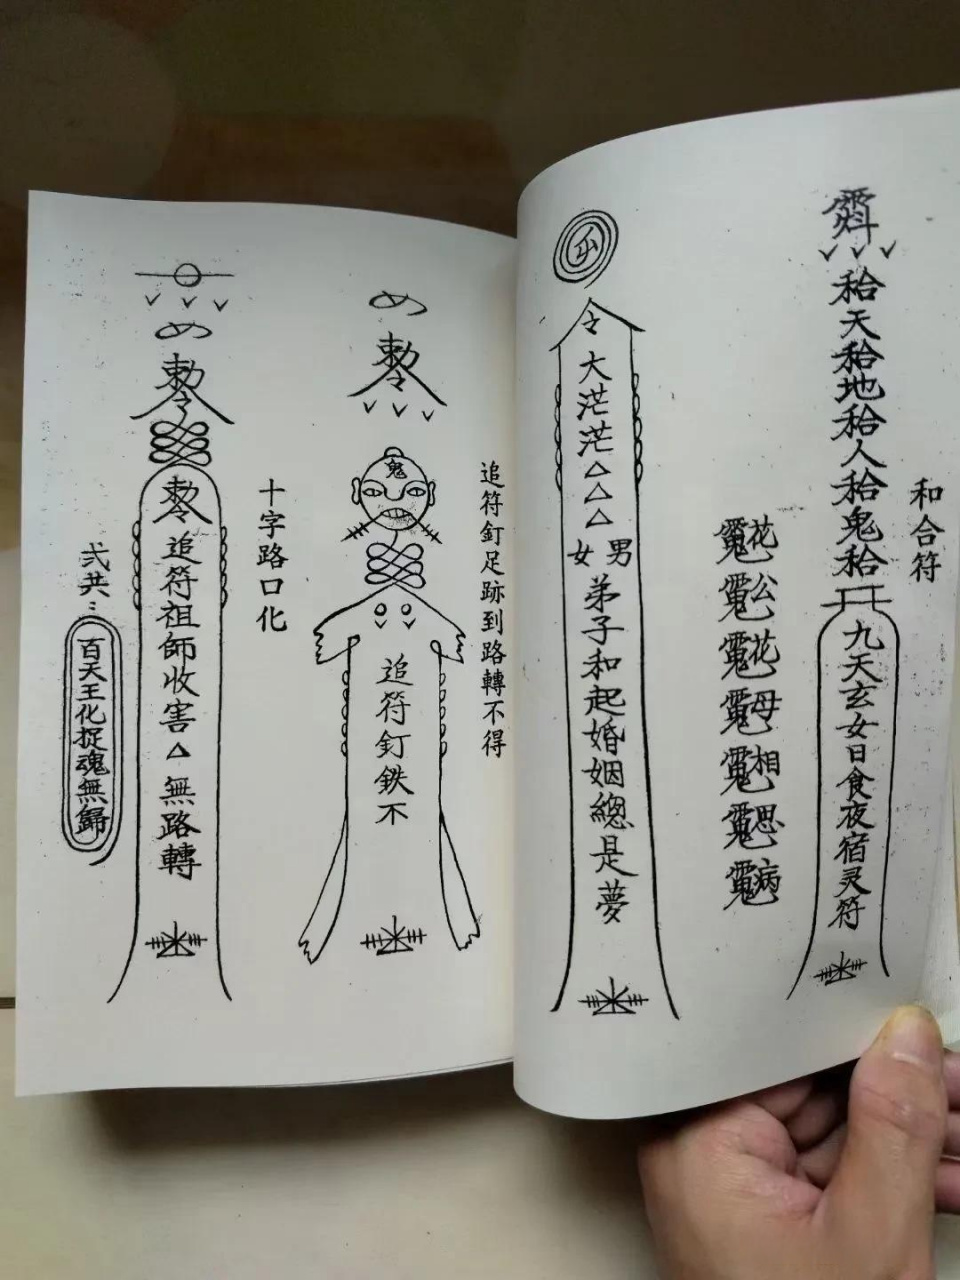 和合符
天
地
人
鬼
九天玄女日食夜宿灵符
花
公
花
母
相
思
病
令
大茫茫△△△
男
女
弟子和起婚姻總是夢
追符釘足跡到路轉不得
敕令
鬼
追符釘鉄不
十字路口化
敕令
敕令
追符祖師收害△無路轉
弍共:
百天王化捉魂無歸